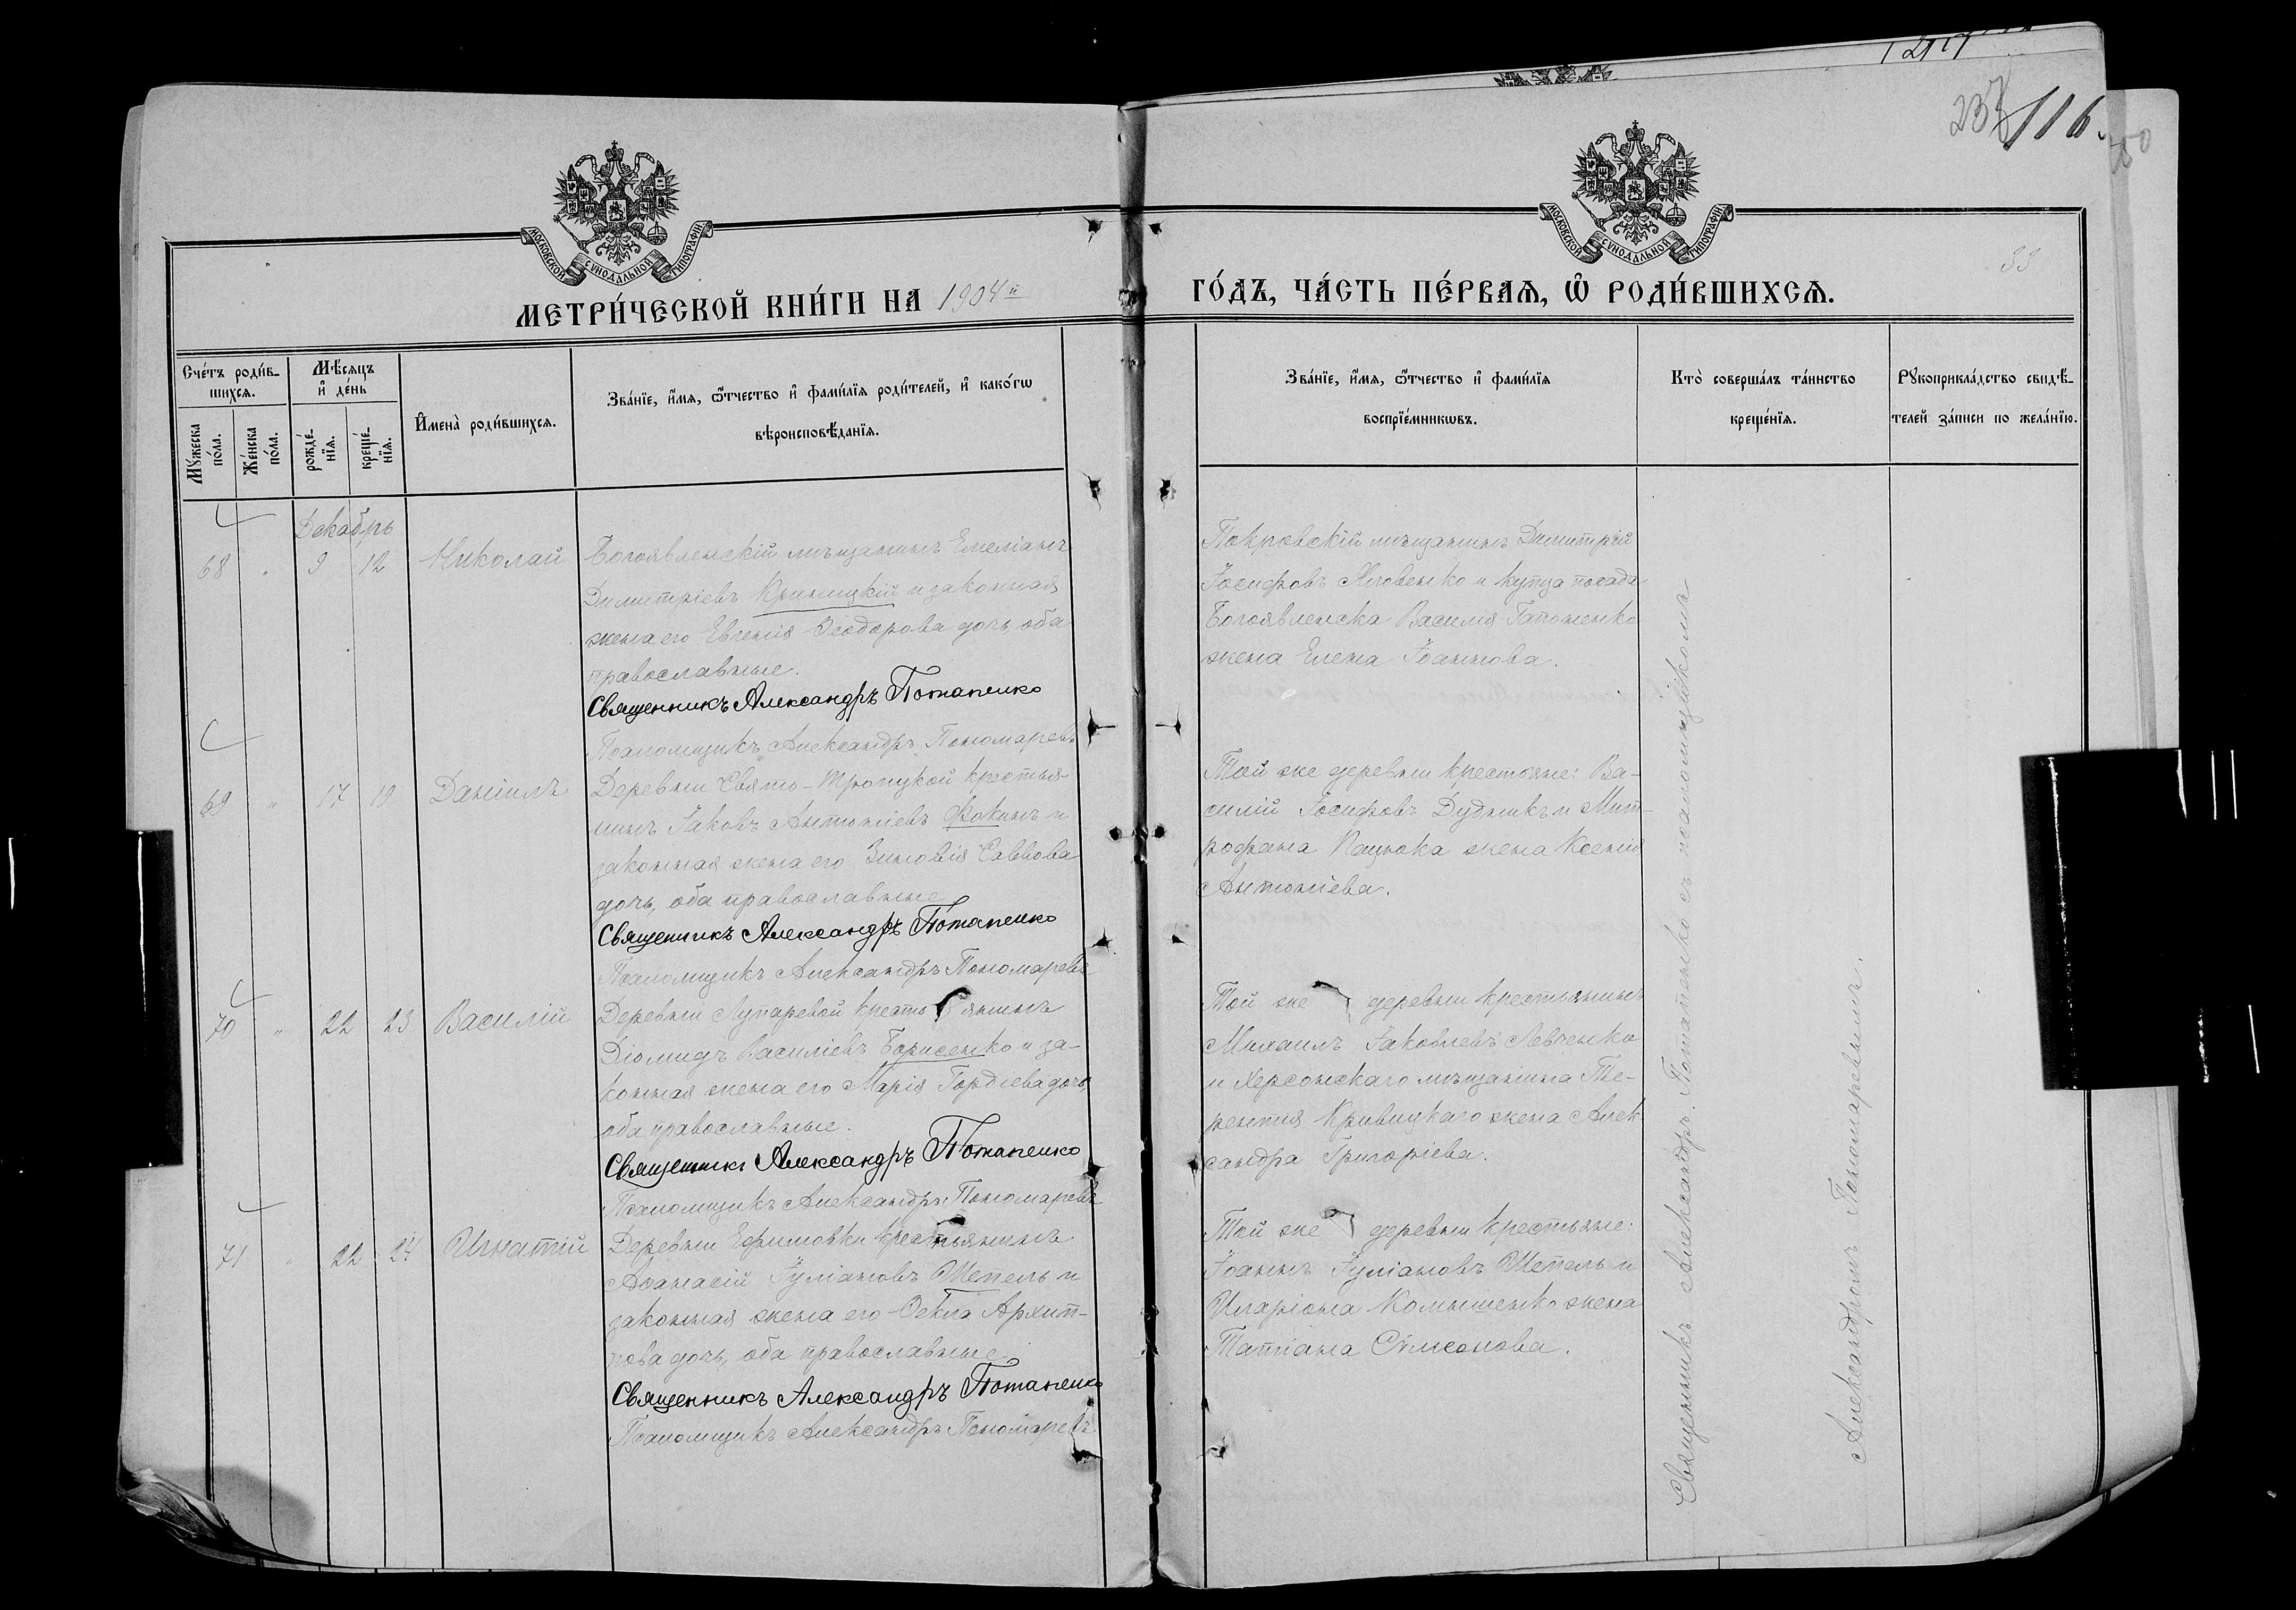 237
116
МОСКОВСКОЙ СУНОДАЛЬНОЙ ТИПОГРАФІИ
МОСКОВСКОЙ СУНОДАЛЬНОЙ ТИПОГРАФІИ
33
МЕТРИ́ЧЕСКОЙ КНИ́ГИ НА 1904й
ГО́ДЪ, ЧА́СТЬ ПЕ́РВАЯ, Ѡ РОДИ́ВШИХСЯ.
Сче́тъ роди́в-
шихся.
Му́жеска по́ла.
Же́нска по́ла.
Мѣ́сяцъ и де́нь
рожде́-
нїя.
креще́-
нїя.
Имена̀ роди́вшихся.
Зва́нїе, и́мя, ѻ́тчество и фами́лїя роди́телей, и како́гѡ
вѣроисповѣ́данїя.
Зва́нїе, и́мя, ѻ́тчество и фами́лїя
воспрїе́мникѡвъ.
Кто̀ соверша́лъ та́инство
креще́нїя.
Рꙋкоприкла́дство свидѣ́-
телей за́писи по жела́нїю.
Декабрь
68 " 9 12 Николай
Богоявленскій мѣщанинъ Емеліанъ
Димитріевъ Криницкій и законная
жена его Евгенія Ѳеодорова дочь, оба
православные.
Священникъ Александръ Потапенко
Псаломщикъ Александръ Пономаревъ
Покровскій мѣщанинъ Димитрій
Іосифовъ Яловенко и купца посада
Богоявленска Василія Гапоненко
жена Елена Іоаннова.
69 " 17 19 Даніилъ
Деревни Свято-Троицкой крестья-
нинъ Іаковъ Антоніевъ Фокинъ и
законная жена его Зиновія Саввова
дочь, оба православные
Священникъ Александръ Потапенко
Псаломщикъ Александръ Пономаревъ
Той же деревни крестьяне: Ва-
силій Іосифовъ Дудникъ и Мит-
рофана Пацюка жена Ксенія
Антоніева.
70 " 22 23 Василій
Деревни Лупаревой крестьянинъ
Діомидъ Василіевъ Борисенко и за-
конная жена его Марія Гордіева дочь,
оба православные.
Священникъ Александръ Потапенко
Псаломщикъ Александръ Пономаревъ
Той же деревни крестьянинъ
Михаилъ Іаковлевъ Левченко
и Херсонскаго мѣщанина Те-
рентія Кривицкаго жена Алек
сандра Григоріева.
71 " 22 24 Игнатій
Деревни Ефимовки крестьянинъ
Аѳанасій Іуліановъ Шепель и
законная жена его Ѳекла Архип-
пова дочь, оба православные.
Священникъ Александръ Потапенко
Псаломщикъ Александръ Пономаревъ
Той же деревни крестьяне:
Іоаннъ Іуліановъ Шепель и
Иларіона Комышенко жена
Татіана Сѵмеонова.
Священникъ Александръ Потапенко съ псаломщикомъ
Александромъ Пономаревымъ.